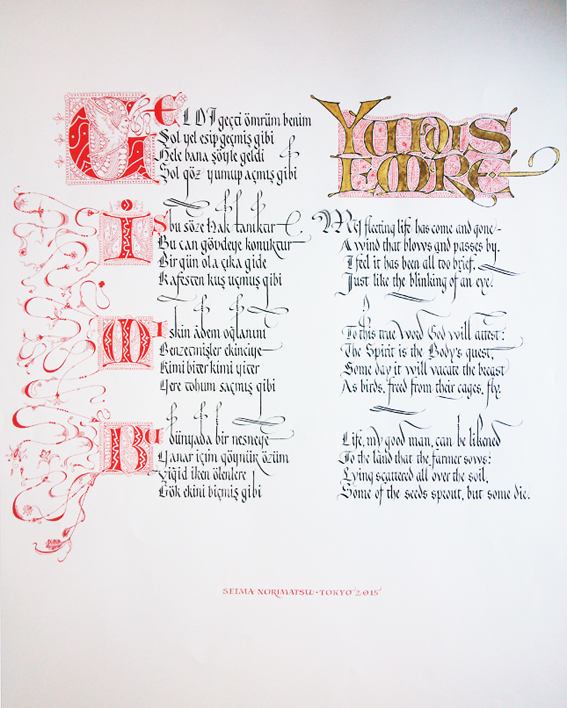 GELDI geçti ömrüm benim
Şol yel esip geçmiş gibi
Hele bana şöyle geldi
Şol göz yumup açmış gibi
İşbu söze Hak tanıktır
Bu can gövdeye konuktur
Bir gün ola çıka gide
Kafesten kuş uçmuş gibi
Miskin âdem oğlanını
Benzetmişler ekinciye
Kimi biter kimi yiter
Yere tohum saçmış gibi
Bu dünyada bir nesneye
Yanar içim göynür özüm
Yiğid iken ölenlere
Gök ekini biçmiş gibi
YUNUS
EMRE
My fleeting life has come and gone
A wind that blows and passes by.
I feel it has been all too brief,
Just like the blinking of an eye.
To this true word God will attest:
The Spirit is the Body's guest,
Some day it will vacate the breast
As birds, freed from their cages, fly.
Life, my good man, can be likened
To the land that the farmer sows:
Lying scattered all over the soil,
Some of the seeds sprout, but some die.
SELMA NORIMATSU · TOKYO 2015